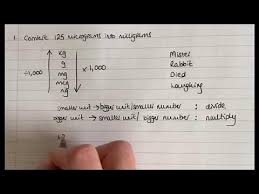 1 Convert 125 micrograms into milligrams
kg Mister
g Rabbit
÷1,000 mg x1,000 Died
mcg Laughing
ng
smaller unit → bigger unit/smaller number : divide
bigger unit → smaller unit/ bigger number : multiply